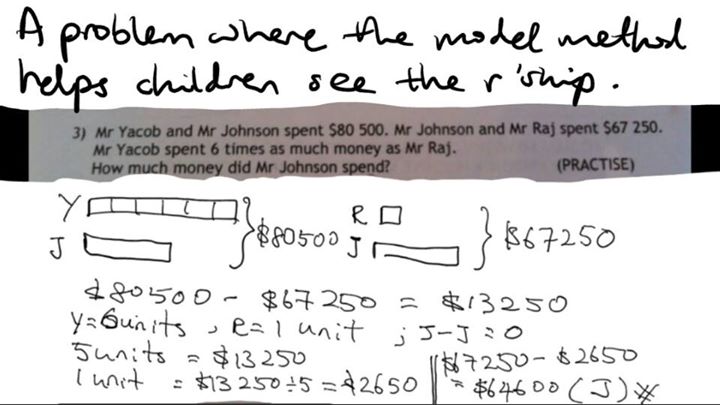 A problem where the model method
helps children see the r'ship.
3) Mr Yacob and Mr Johnson spent $80 500. Mr Johnson and Mr Raj spent $67 250.
Mr Yacob spent 6 times as much money as Mr Raj.
How much money did Mr Johnson spend? (PRACTISE)
Y R
J $80500 J $67250
$80500 - $67250 = $13250
Y=6units, R=1 unit ; J-J=0
5units = $13250
1unit = $13250÷5=$2650
$67250-$2650
=$64600 (J)